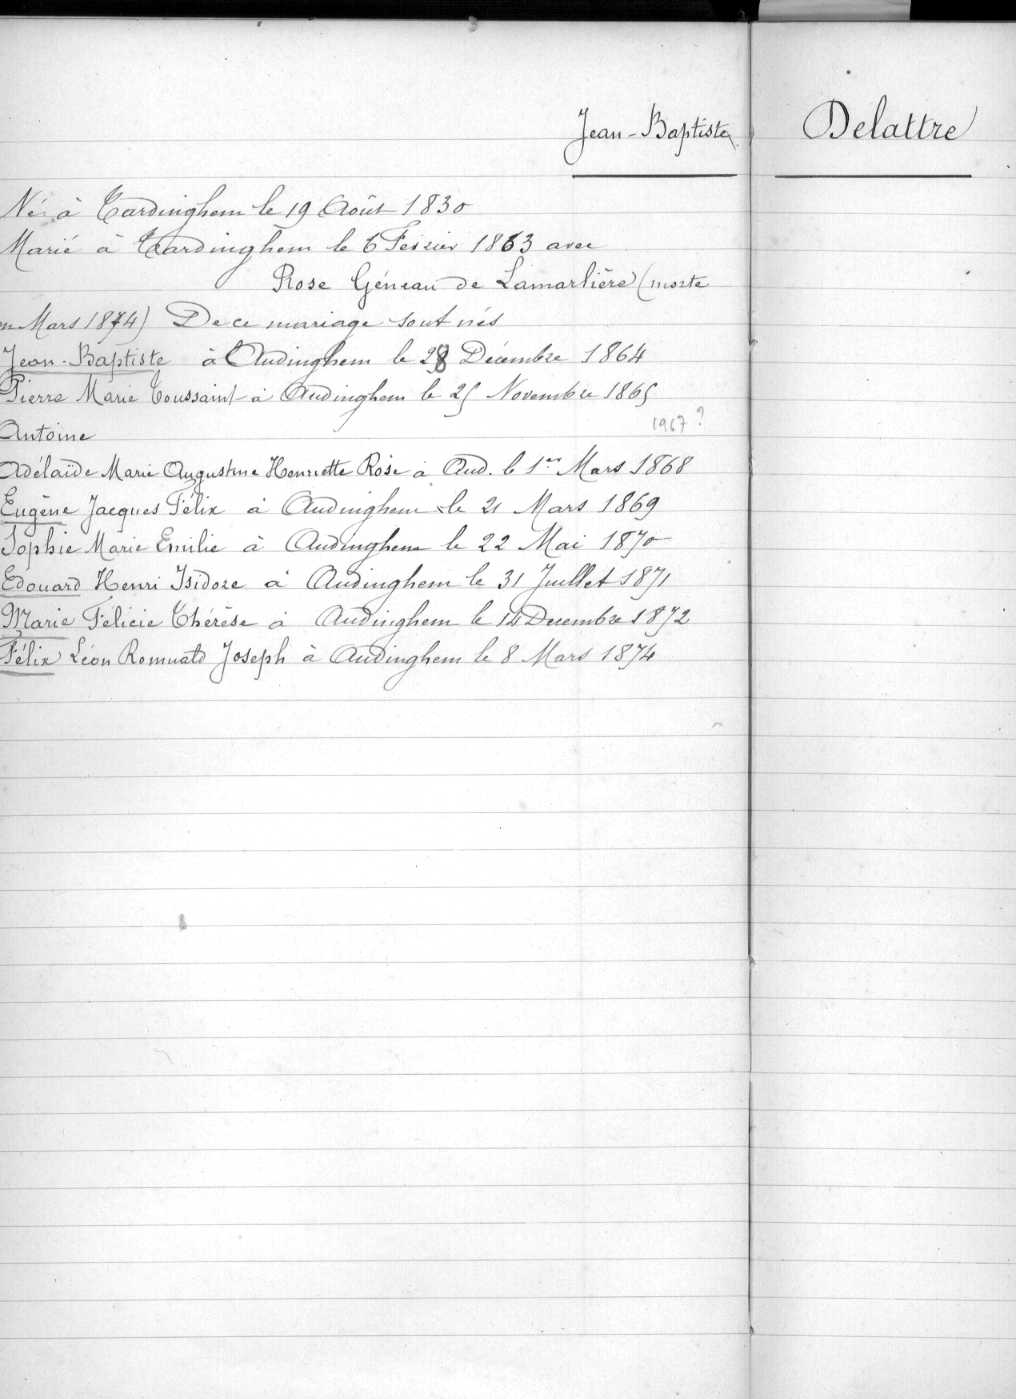 Jean-Baptiste Delattre
Né à Tardinghem le 19 Août 1830
Marié à Tardinghem le 6 Février 1863 avec
Rose Géneau de Lamarlière (morte
en Mars 1874) De ce mariage sont nés
Jean-Baptiste à Audinghem le 28 Décembre 1864
Pierre Marie Toussaint à Audinghem le 25 Novembre 1865
1967 ?
Antoine
Adélaïde Marie Augustine Henriette Rose à Aud. le 1er Mars 1868
Eugène Jacques Félix à Audinghem le 21 Mars 1869
Sophie Marie Emilie à Audinghem le 22 Mai 1870
Edouard Henri Isidore à Audinghem le 31 Juillet 1871
Marie Félicie Thérèse à Audinghem le Décembre 1872
Félix Léon Romuald Joseph à Audinghem le 8 Mars 1874